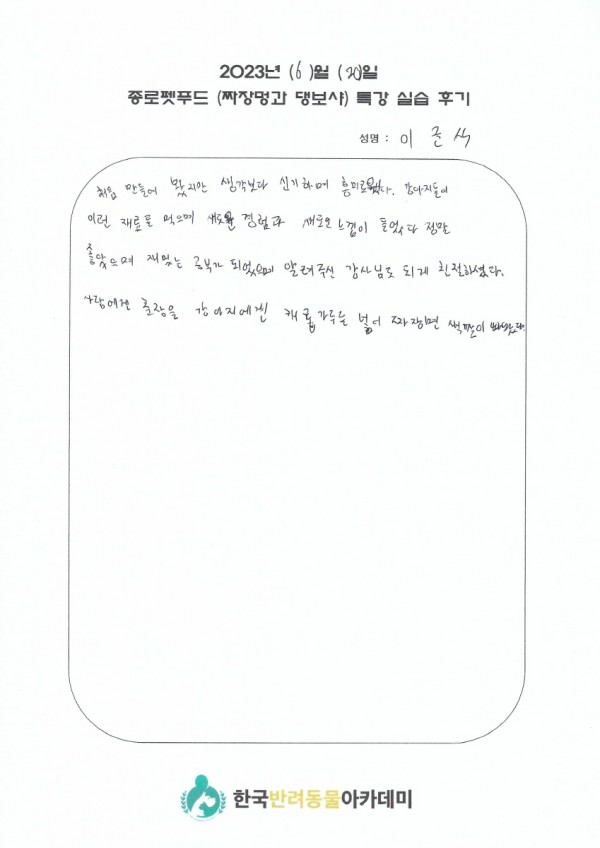 2023년 (6)월 (20)일
종로펫푸드 (짜장멍과 댕보샤) 특강 실습 후기
성명 : 이준석
처음 만들어 봤지만 생각보다 신기하며 흥미로웠다. 강아지들이
이런 재료를 먹으며 새로운 경험과 새로운 느낌이 들었다 정말
좋았으며 재밌는 공부가 되었으며 알려주신 강사님도 되게 친절하셨다.
사람에겐 춘장을 강아지에겐 캐롭가루를 넣어 짜장면 색깔이
한국반려동물아카데미